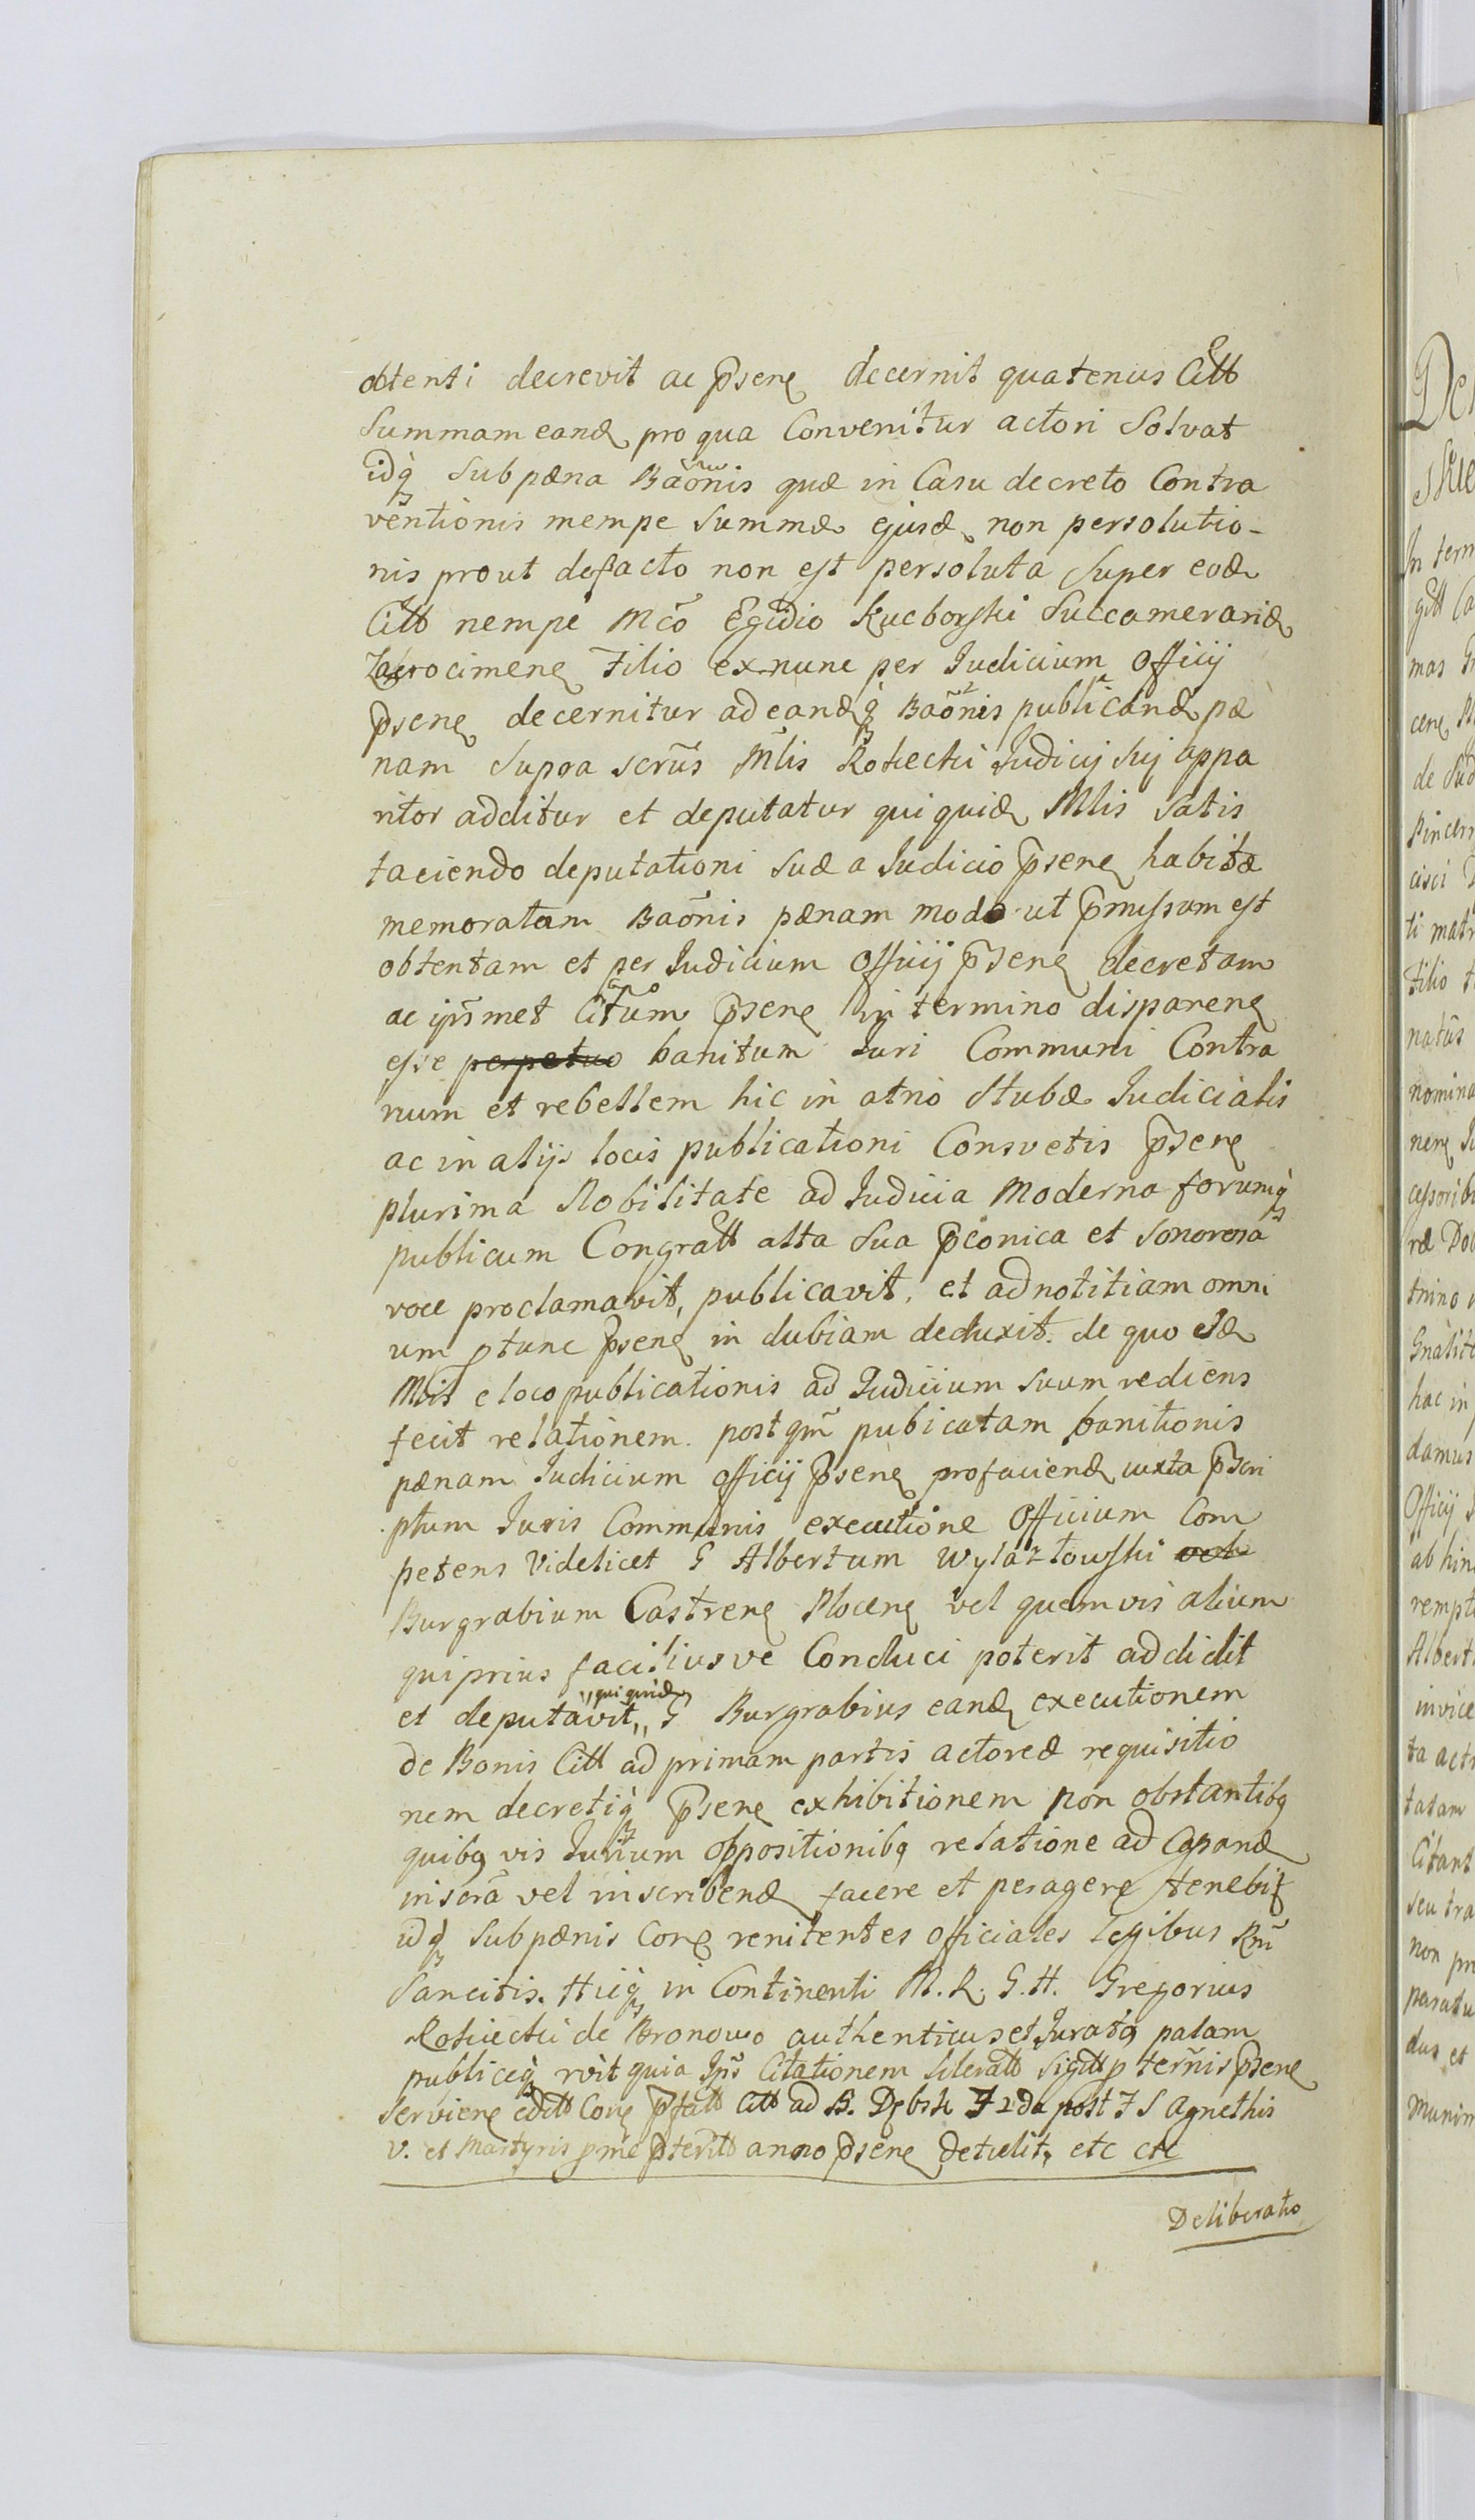 obtenti decrevit ac p̄senę decernit quatenus Citt
Summam eand pro qua Convenitur actori Solvat
idq̀ Sub pæna Baõnis quæ in Casu decreto Contra
ventionis mempe Summæ ejusd non persolutio-
nis prout defacto non est persoluta Super eod
Citt nempe Mcõ Egidio Kucborski Succamerarid
Zacrocimenę Filio ex nunc per Iudicium Officij
p̄senę decernitur ad eandq̀ Baõnis publicand pæ
nam Supra scrũs Mlis Rokecki Judicij huj appa
ritor additur et deputatur qui quid Mlis Satis
faciendo deputationi Suæ a Iudicio p̄senę habitæ
memoratam Baõnis pænam modo ut p̄missum est
obtentam et per Iudicium Officij p̄senę decretam
ac ip̃smet Citũm p̄senę in termino disparenę
esse perpetuo banitum Iuri Communi Contra
rium et rebellem hic in atrio Stubæ Iudicialis
ac in alijs locis publicationi Consvetis p̄senę
plurima Nobilitate ad Iudicia Moderna forumq̀
publicum Congratt alta Sua p̄conica et Sonorosa
voce proclamavit, publicavit, et ad notitiam omni
um ptunc p̄senę in dubiam deduxit. de quo id
Mlis e loco publicationis ad Iudicium Suum rediens
fecit relationem. post qm̃ pubicatam banitionis
pænam Iudicium officij p̄senę pro faciend iuxta p̄scri
ptum Iuris Communis executione Officium Com
petens Videlicet G Albertum Wylazłowski vel
Burgrabium Castrenę Plocenę vel quemvis alium
qui prius facilius ve Conduci poterit addidit
et deputavit „qui quid„ G Burgrabius eand executionem
de Bonis Citt ad primam partis actoreæ requisitio
nem decretiq̀ p̄senę exhibitionem non obstantibq
quibq vis Iurium oppositionibq relatione ad Capand
inscrã vel inscribend facere et peragere tenebit
idq̀ Sub pænis Conę renitentes Officiales legibus Rm̃
Sancitis. Hicq̀ in Continenti M. R. G. H. Gregorius
Rokiecki de Bronowo authenticus et Iuratq palam
publiceq̀ rõit quia Ip̃s Citationem literatt Sigitt p term̃is p̄senę
Servienę editt Conę p̄fatt Citt ad B. Dębsk F 2da post F S Agnethis
V. et Martyris p̄me p̄teritt anno p̄senę detulit, etc etc
Deliberatio